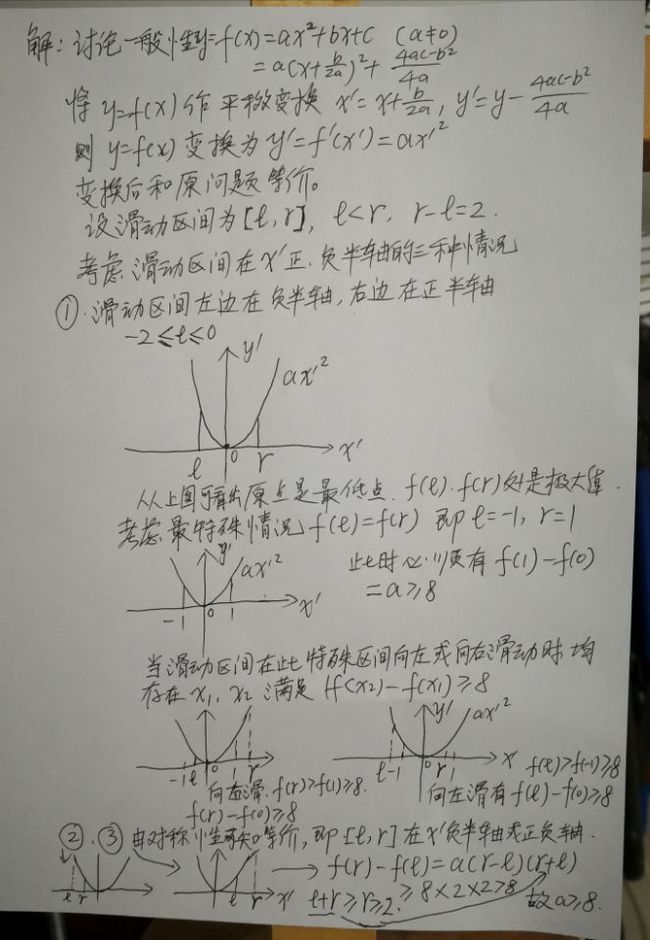 解：讨论一般性y=f(x)=ax²+bx+c (a≠0)
=a(x+b/2a)²+(4ac-b²)/4a
将y=f(x)作平移变换 x'=x+b/2a, y'=y-(4ac-b²)/4a
则 y=f(x) 变换为 y'=f'(x')=ax'²
变换后和原问题等价。
设滑动区间为[l,r], l<r, r-l=2.
考虑滑动区间在x'正、负半轴的三种情况
①.滑动区间左边在负半轴,右边在正半轴
-2≤l≤0
y'
ax'²
l 0 r x'
从上图可看出原点是最低点.f(l).f(r)处是极大值.
考虑最特殊情况 f(l)=f(r) 即 l=-1, r=1
y'
ax'²
-1 0 1 x'
此时必须有 f(1)-f(0)
=a≥8
当滑动区间在此特殊区间向左或向右滑动时均
存在 x₁, x₂ 满足 |f(x₂)-f(x₁)≥8
-1 l 0 1 r
向右滑.f(r)>f(1)≥8.
f(r)-f(0)≥8
y'
ax'²
l -1 0 r 1 x
f(l)>f(-1)≥8
向左滑有f(l)-f(0)≥8
②.③由对称性可知等价,即[l,r]在x'负半轴或正负轴.
l r
l r x'
→ f(r)-f(l)=a(r-l)(r+l)
l+r≥r≥2. ≥8×2×2>8 故a≥8.